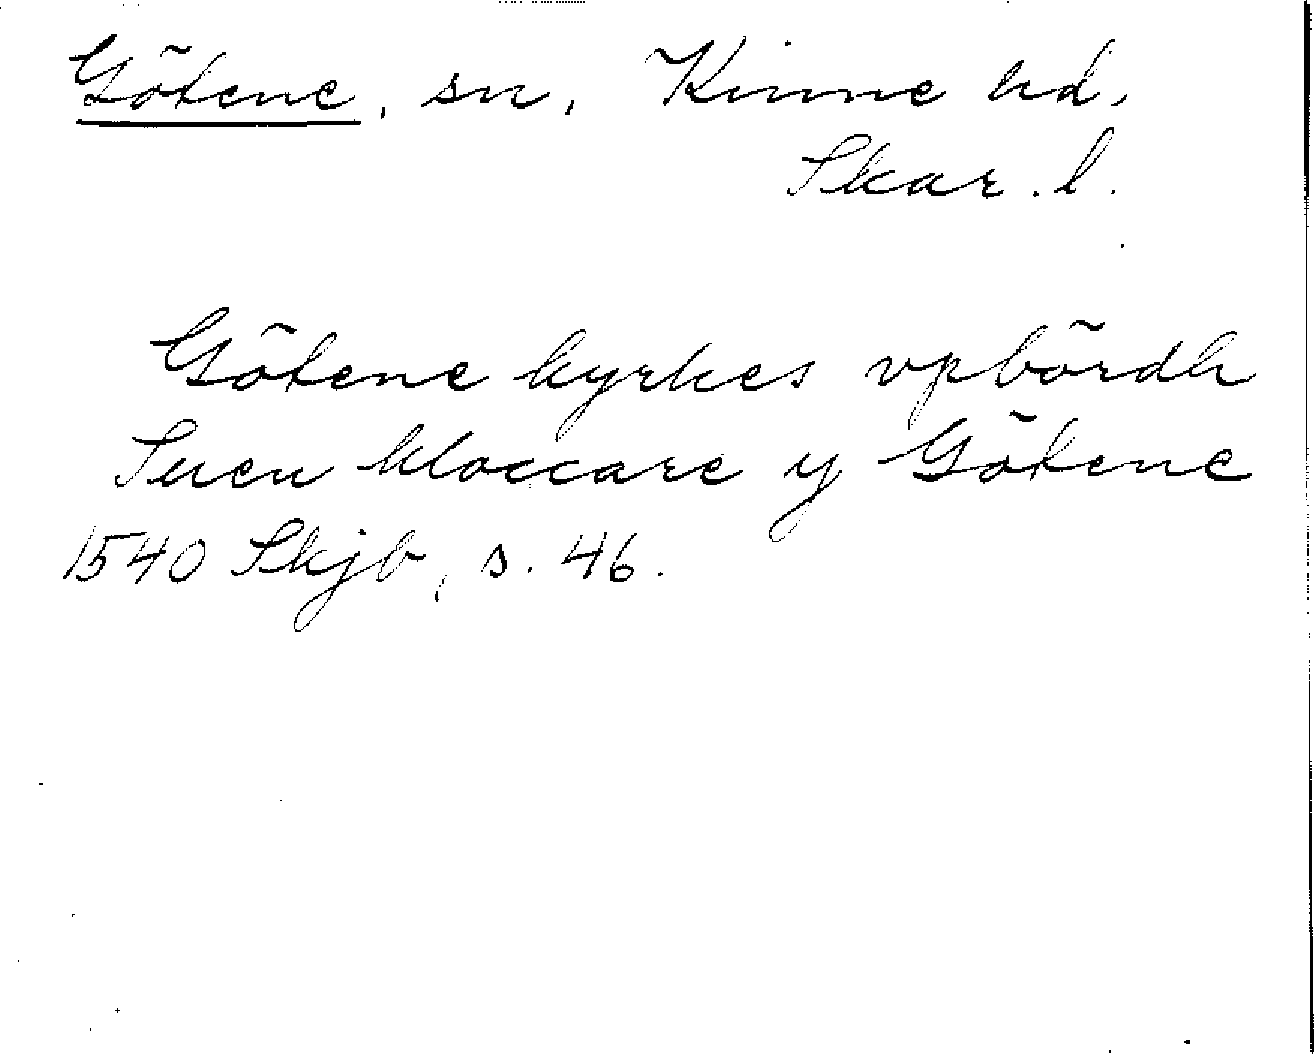 Götene, sn, Kinne hd,
Skar. l.
Götene kyrkes vpbördh
Suen kloccare y Götene
1540 Skjb, s. 46.